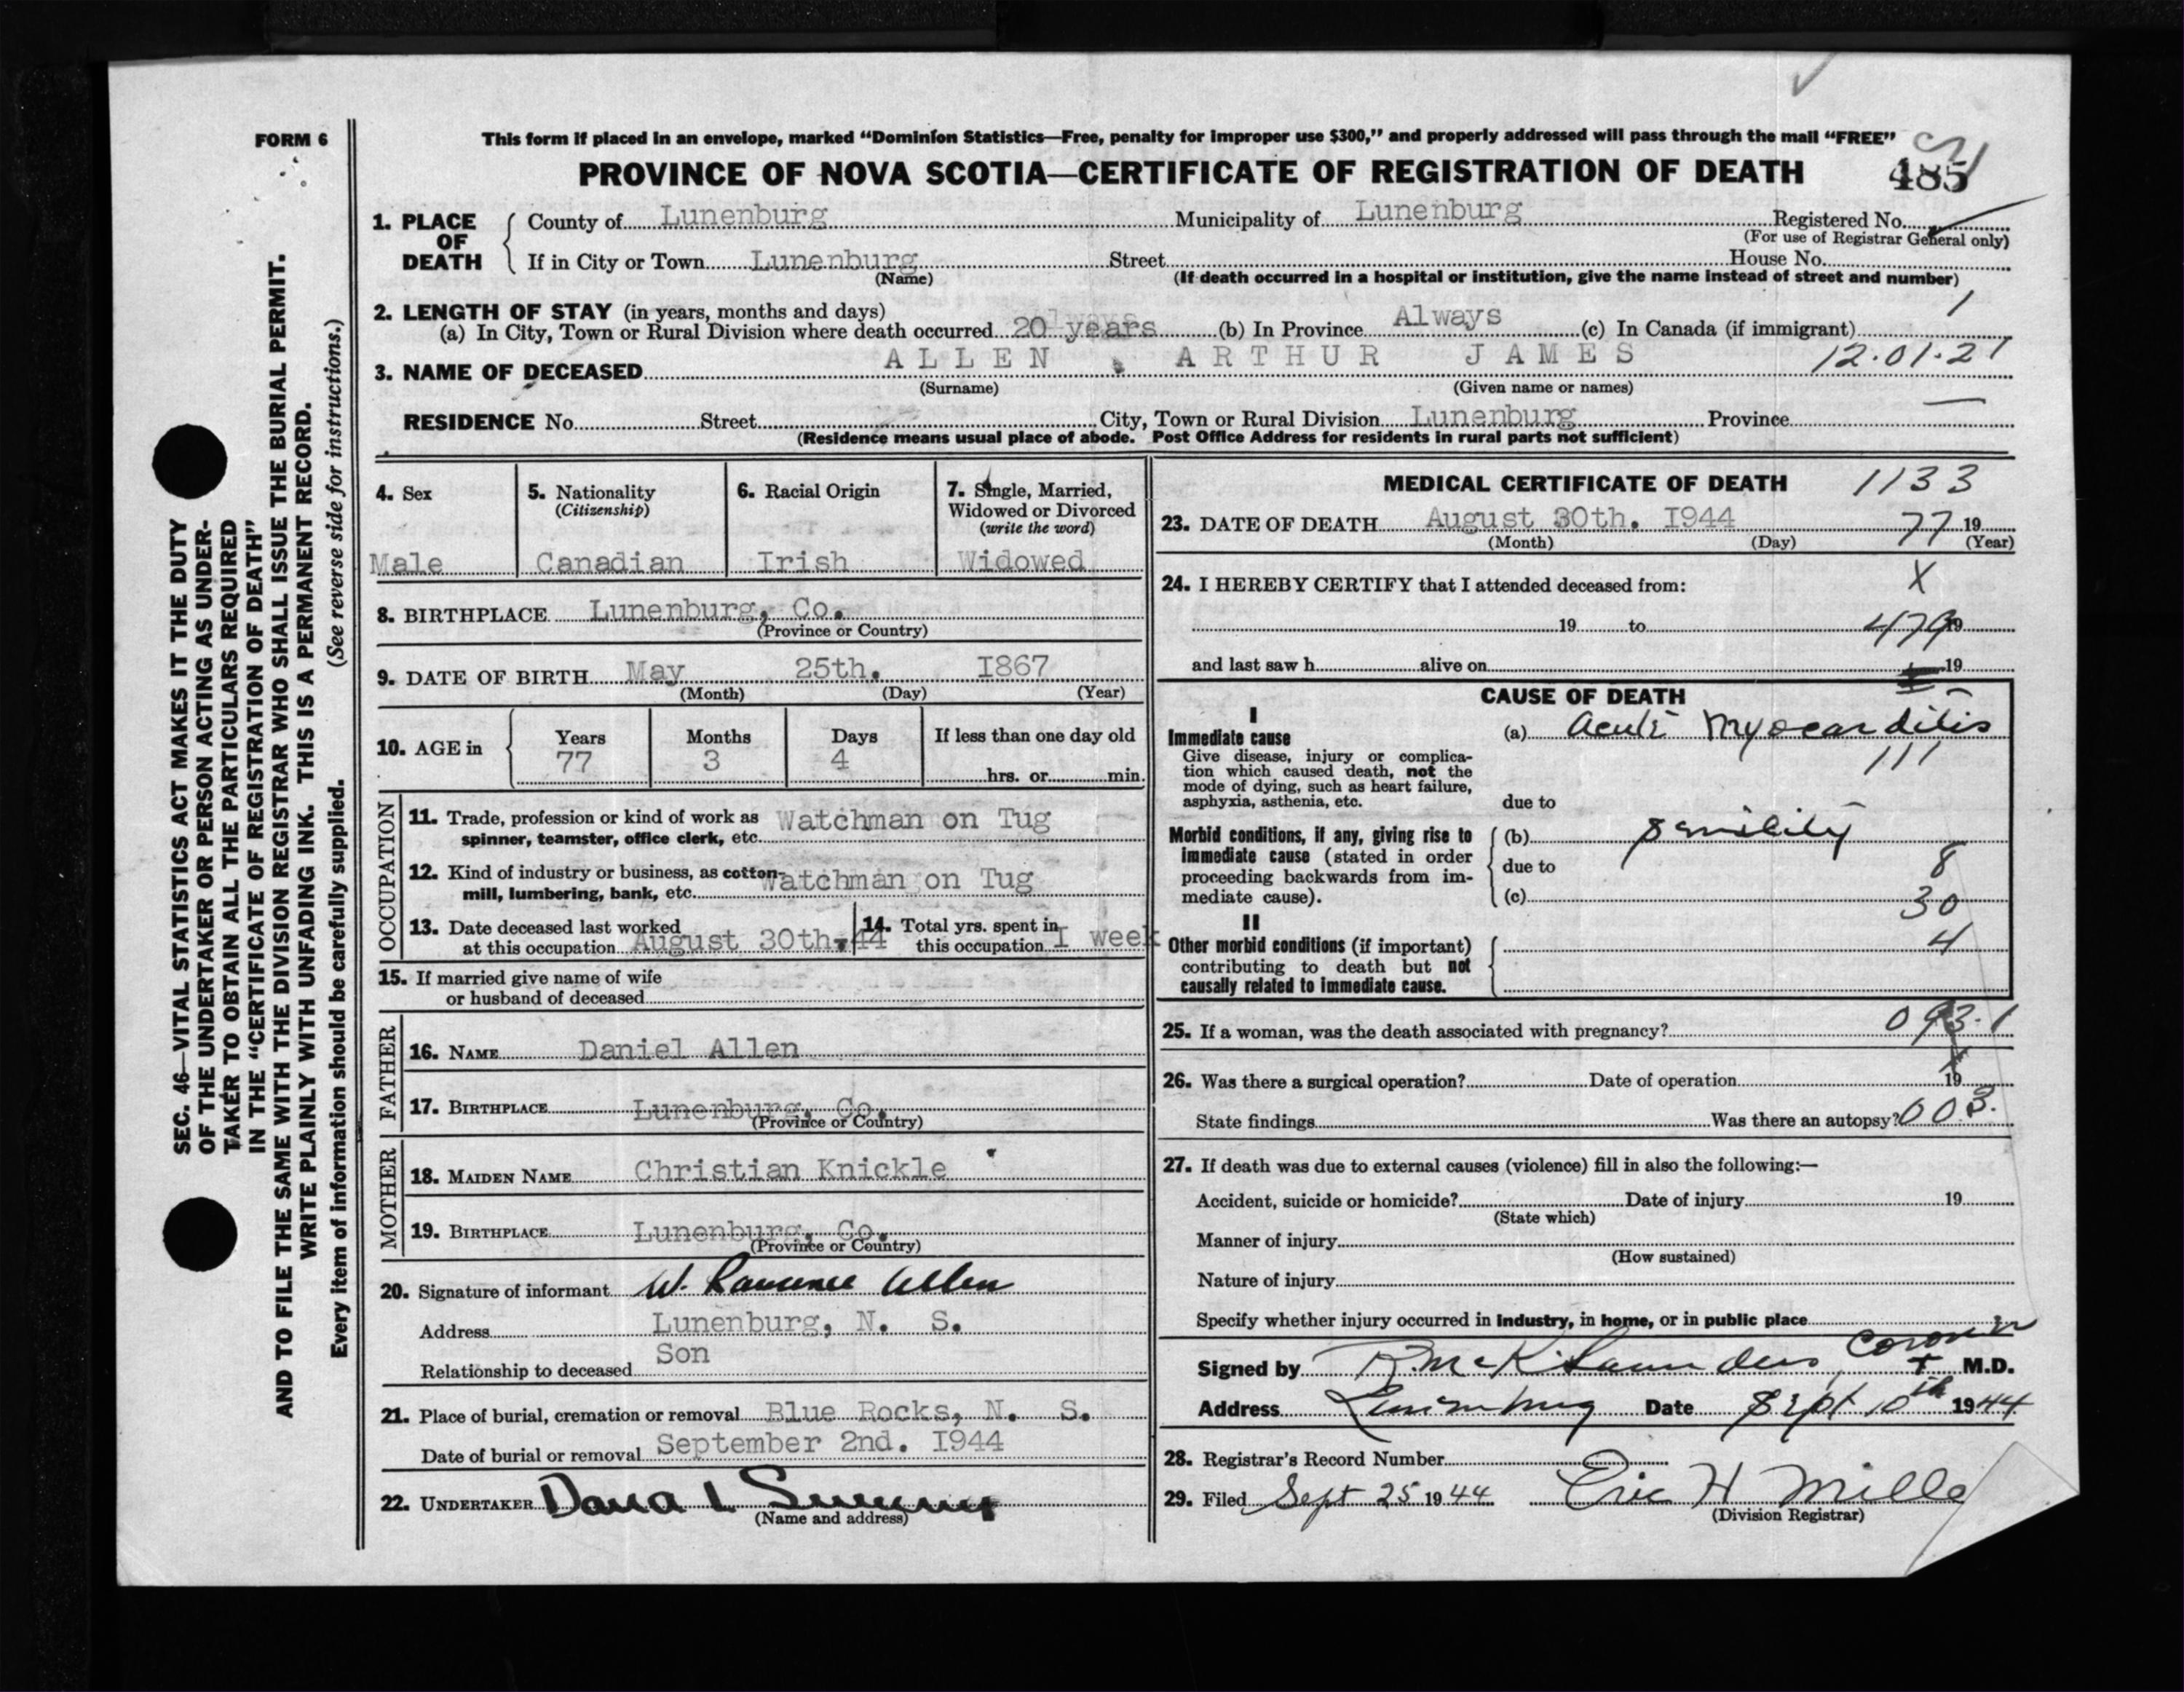 FORM 6
This form if placed in an envelope, marked “Dominion Statistics—Free, penalty for improper use $300,” and properly addressed will pass through the mail “FREE”
PROVINCE OF NOVA SCOTIA—CERTIFICATE OF REGISTRATION OF DEATH 485
1. PLACE OF DEATH
County of Lunenburg Municipality of Lunenburg Registered No.
(For use of Registrar General only)
If in City or Town Lunenburg Street House No.
(Name) (If death occurred in a hospital or institution, give the name instead of street and number)
2. LENGTH OF STAY (in years, months and days) 1
(a) In City, Town or Rural Division where death occurred 20 years (b) In Province Always (c) In Canada (if immigrant)
3. NAME OF DECEASED ALLEN , ARTHUR JAMES 12.01.21
(Surname) (Given name or names)
RESIDENCE No. Street City, Town or Rural Division Lunenburg Province
(Residence means usual place of abode. Post Office Address for residents in rural parts not sufficient)
4. Sex
Male
5. Nationality
(Citizenship)
Canadian
6. Racial Origin
Irish
7. Single, Married,
Widowed or Divorced
(write the word)
Widowed
8. BIRTHPLACE Lunenburg, Co.
(Province or Country)
9. DATE OF BIRTH May 25th. 1867
(Month) (Day) (Year)
10. AGE in
Years Months Days If less than one day old
77 3 4
hrs. or min.
OCCUPATION
11. Trade, profession or kind of work as Watchman on Tug
spinner, teamster, office clerk, etc.
12. Kind of industry or business, as cotton- Watchman on Tug
mill, lumbering, bank, etc.
13. Date deceased last worked
at this occupation August 30th. 44
14. Total yrs. spent in
this occupation I week
15. If married give name of wife
or husband of deceased
FATHER
16. NAME Daniel Allen
17. BIRTHPLACE Lunenburg, Co.
(Province or Country)
MOTHER
18. MAIDEN NAME Christian Knickle
19. BIRTHPLACE Lunenburg, Co.
(Province or Country)
20. Signature of informant W. Laurence Allen
Address Lunenburg, N. S.
Relationship to deceased Son
21. Place of burial, cremation or removal Blue Rocks, N. S.
Date of burial or removal September 2nd. I944
22. UNDERTAKER Dana L Sweeny
(Name and address)
MEDICAL CERTIFICATE OF DEATH 1133
23. DATE OF DEATH August 30th. I944 77 19
(Month) (Day) (Year)
24. I HEREBY CERTIFY that I attended deceased from: X
19 to 479 19
and last saw h alive on 19
CAUSE OF DEATH
I
Immediate cause
Give disease, injury or complica-
tion which caused death, not the
mode of dying, such as heart failure,
asphyxia, asthenia, etc.
(a) Acute Myocarditis
111
due to
Morbid conditions, if any, giving rise to
immediate cause (stated in order
proceeding backwards from im-
mediate cause).
(b) Senility
due to 8
(c)
30
II
Other morbid conditions (if important)
contributing to death but not
causally related to immediate cause.
4
25. If a woman, was the death associated with pregnancy? 093.1
26. Was there a surgical operation? Date of operation 19
State findings Was there an autopsy? 003.
27. If death was due to external causes (violence) fill in also the following:—
Accident, suicide or homicide? Date of injury 19
(State which)
Manner of injury
(How sustained)
Nature of injury
Specify whether injury occurred in industry, in home, or in public place
Signed by R. McK. Saunders, Coroner M.D.
Address Lunenburg Date Sept 10th 1944
28. Registrar's Record Number
29. Filed Sept 25 1944 Eric H Mills
(Division Registrar)
SEC. 46—VITAL STATISTICS ACT MAKES IT THE DUTY
OF THE UNDERTAKER OR PERSON ACTING AS UNDER-
TAKER TO OBTAIN ALL THE PARTICULARS REQUIRED
IN THE “CERTIFICATE OF REGISTRATION OF DEATH”
AND TO FILE THE SAME WITH THE DIVISION REGISTRAR WHO SHALL ISSUE THE BURIAL PERMIT.
WRITE PLAINLY WITH UNFADING INK. THIS IS A PERMANENT RECORD.
Every item of information should be carefully supplied. (See reverse side for instructions.)